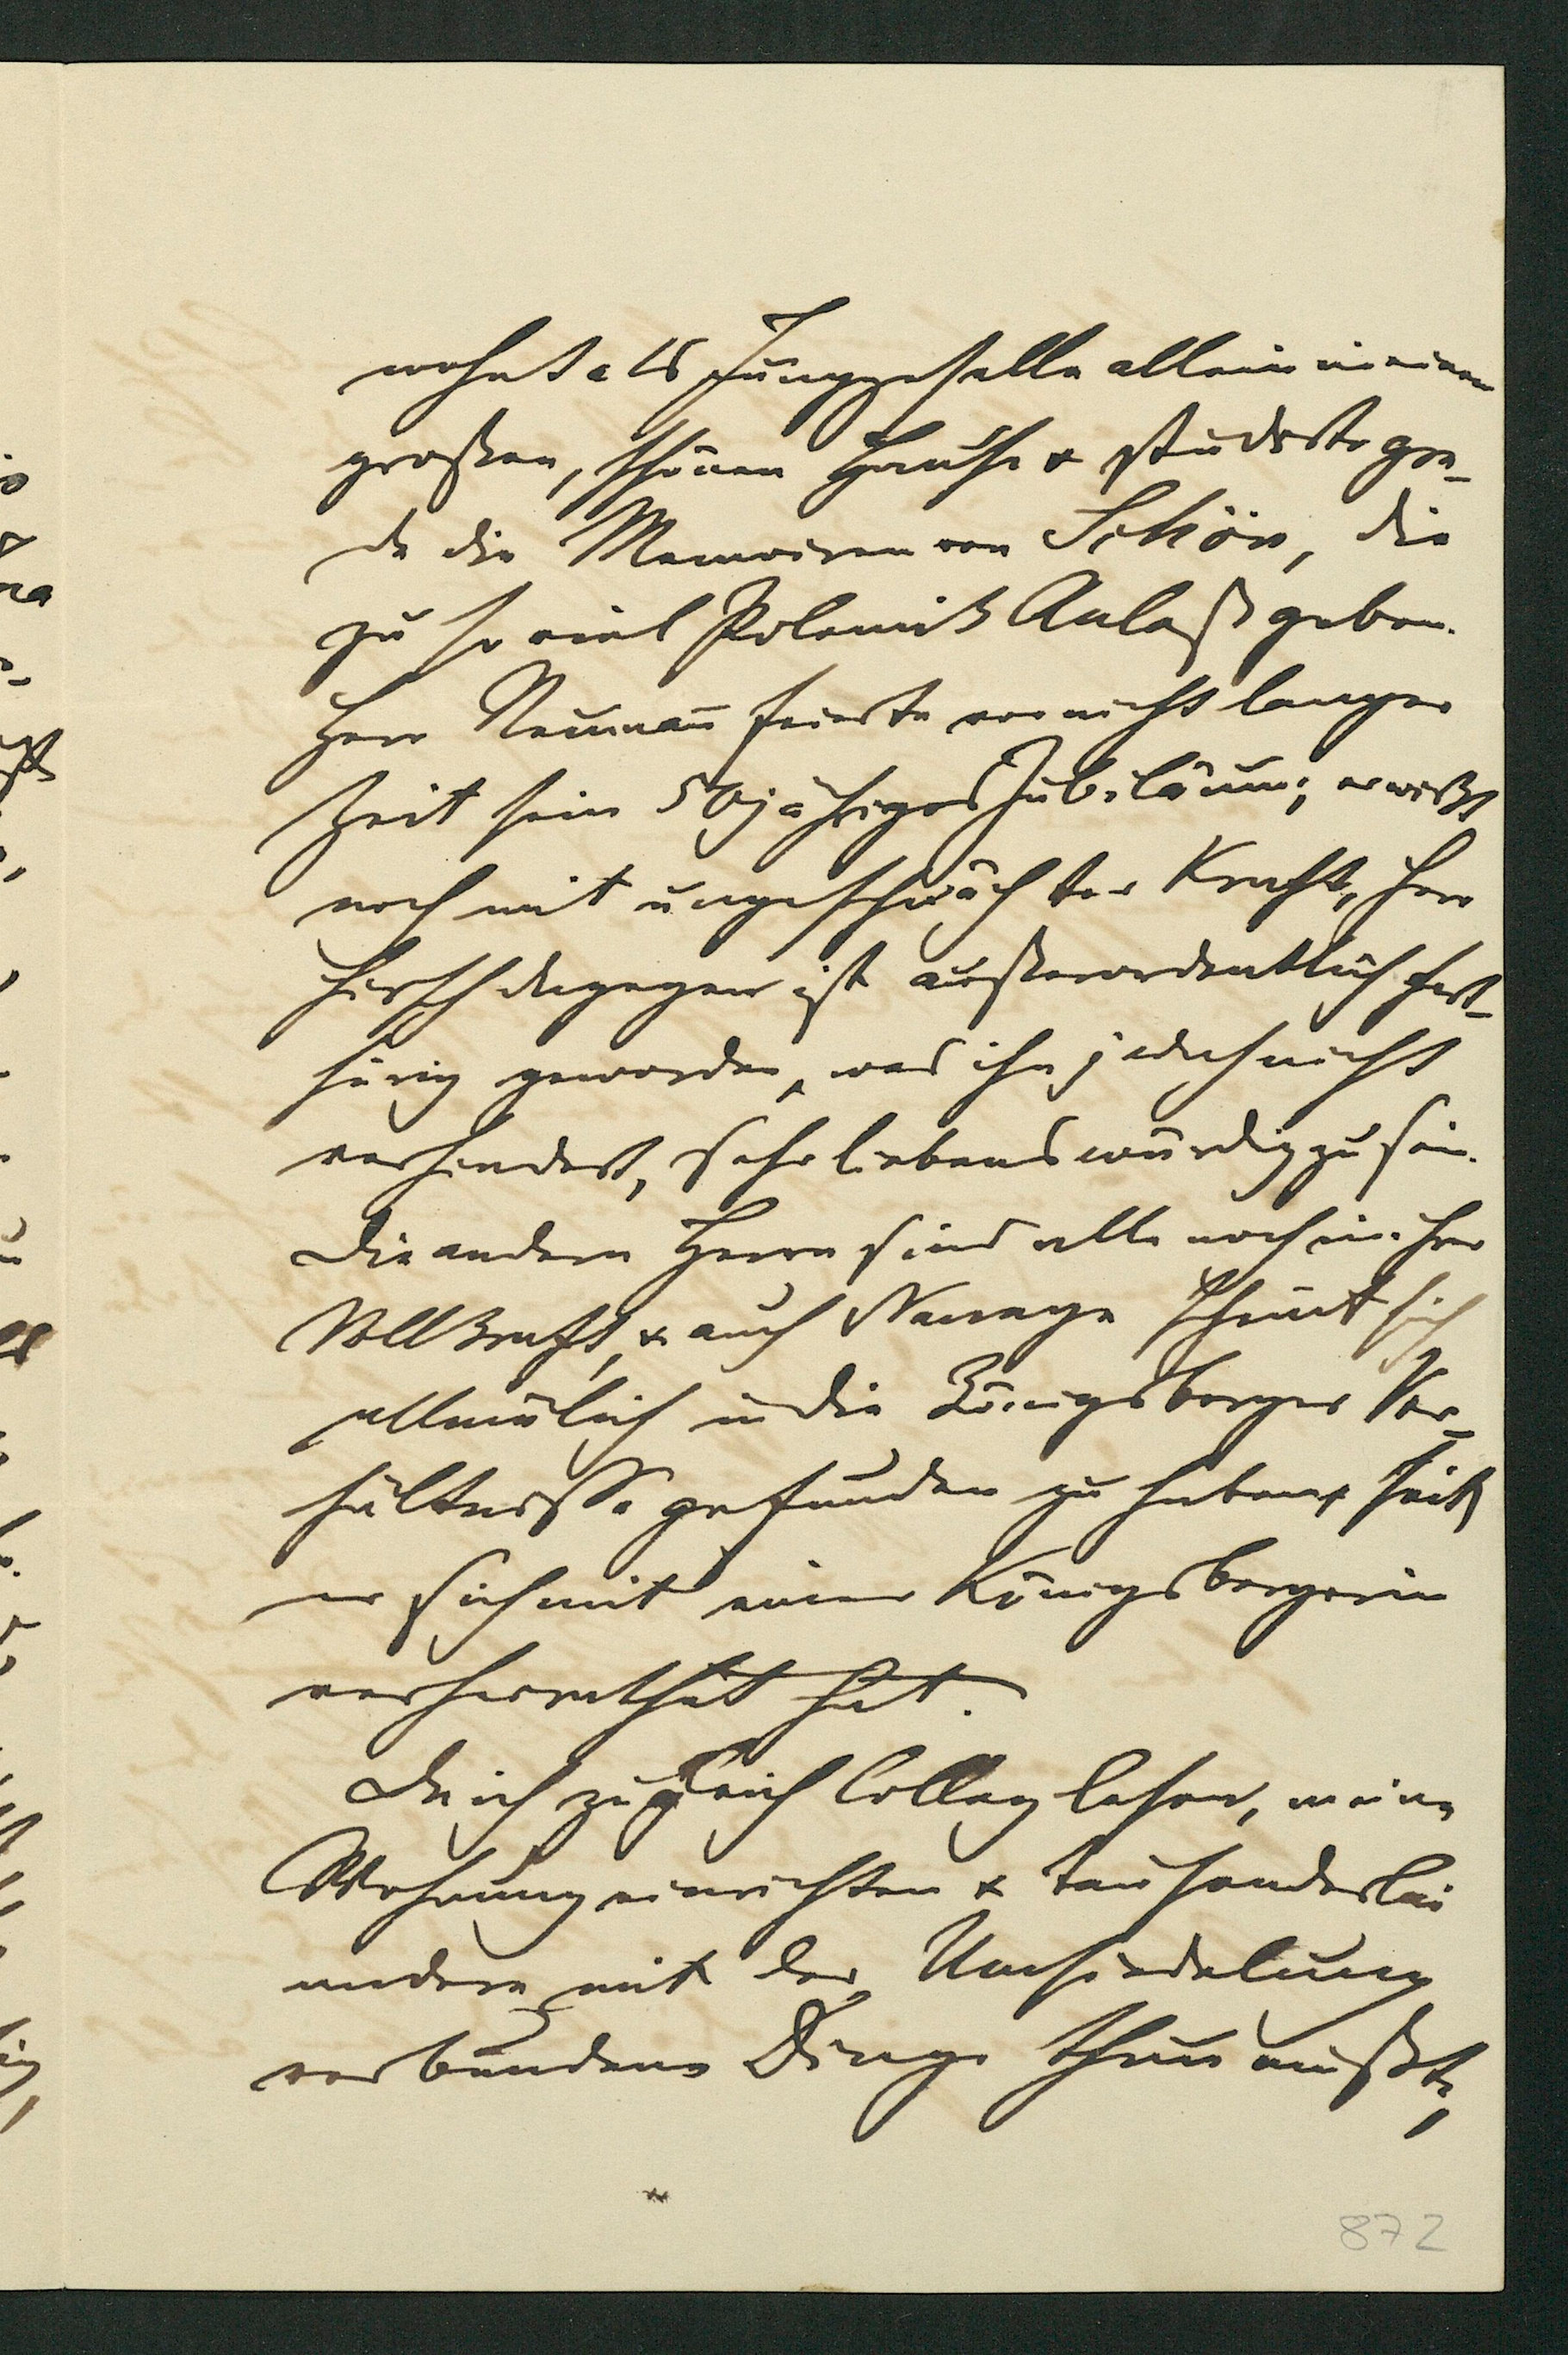 wohnt als Junggeselle allein in einem
großen, schönen Hause & studirte gra-
de die Memoiren von Schön, die
zu so viel Polemik Anlaß geben.
Herr Neumañ feierte vor nicht langer
Zeit sein 50jähriges Jubiläum; er wirkt
noch mit ungeschwächter Kraft, Herr
Hirsch dagegen ist außerordentlich hart-
hörig geworden, was ihn jedoch nicht
verhindert, sehr liebenswürdig zu sein.
Die andern Herrn sind alle noch in ihrer
Vollkraft, & auch scheint sich
allmälich in die Königsberger Ver-
hältnisse gefunden zu haben, seit
er sich mit einer Königsbergerin
verheirathet hat.
Da ich zugleich Colleg lesen, meine
Wohnung einrichten & tausenderlei
andere mit der Umsiedelung
verbundene Dinge thun mußte,
872